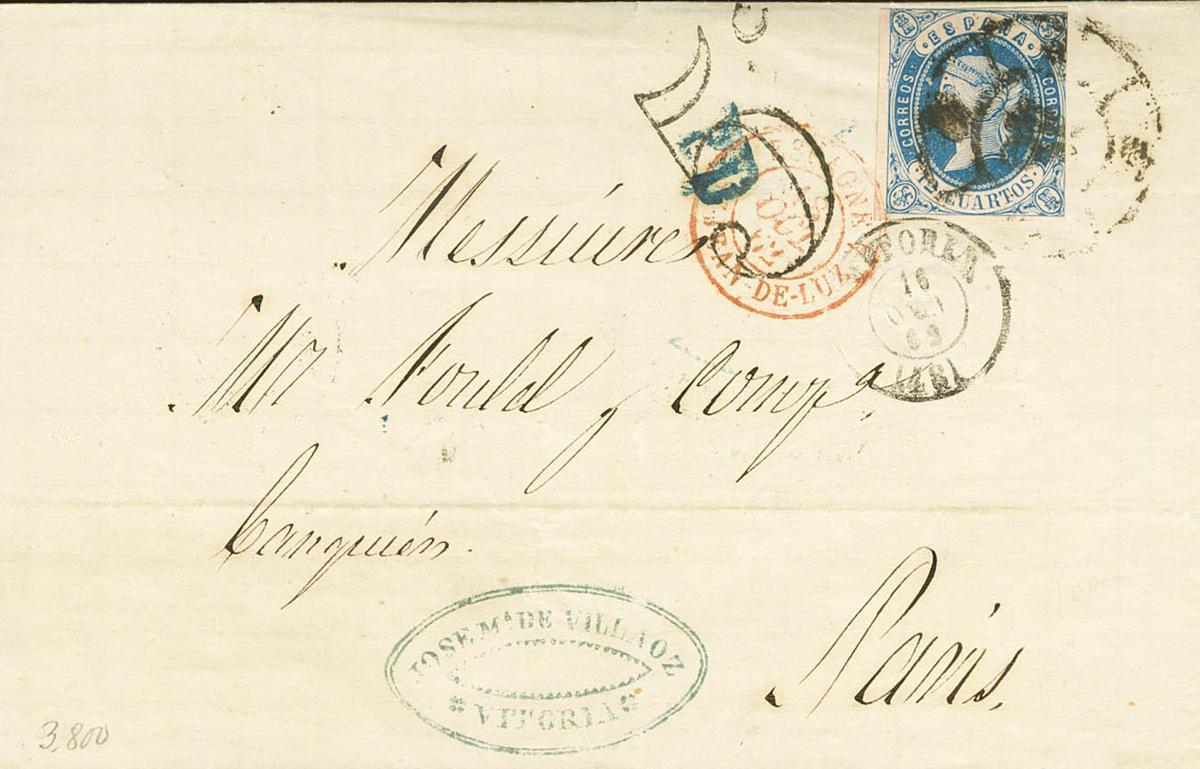 ESPAÑA
CORREOS
CORREOS
CUARTOS
PD
ESPAGNE
18
OCT
62
JEAN-DE-LUZ
VITORIA
16
OCT
62
Messieurs
Mrs Fould y Compª.
Banquiérs.
Paris.
JOSE Mª DE VILLAOZ
VITORIA
3,800